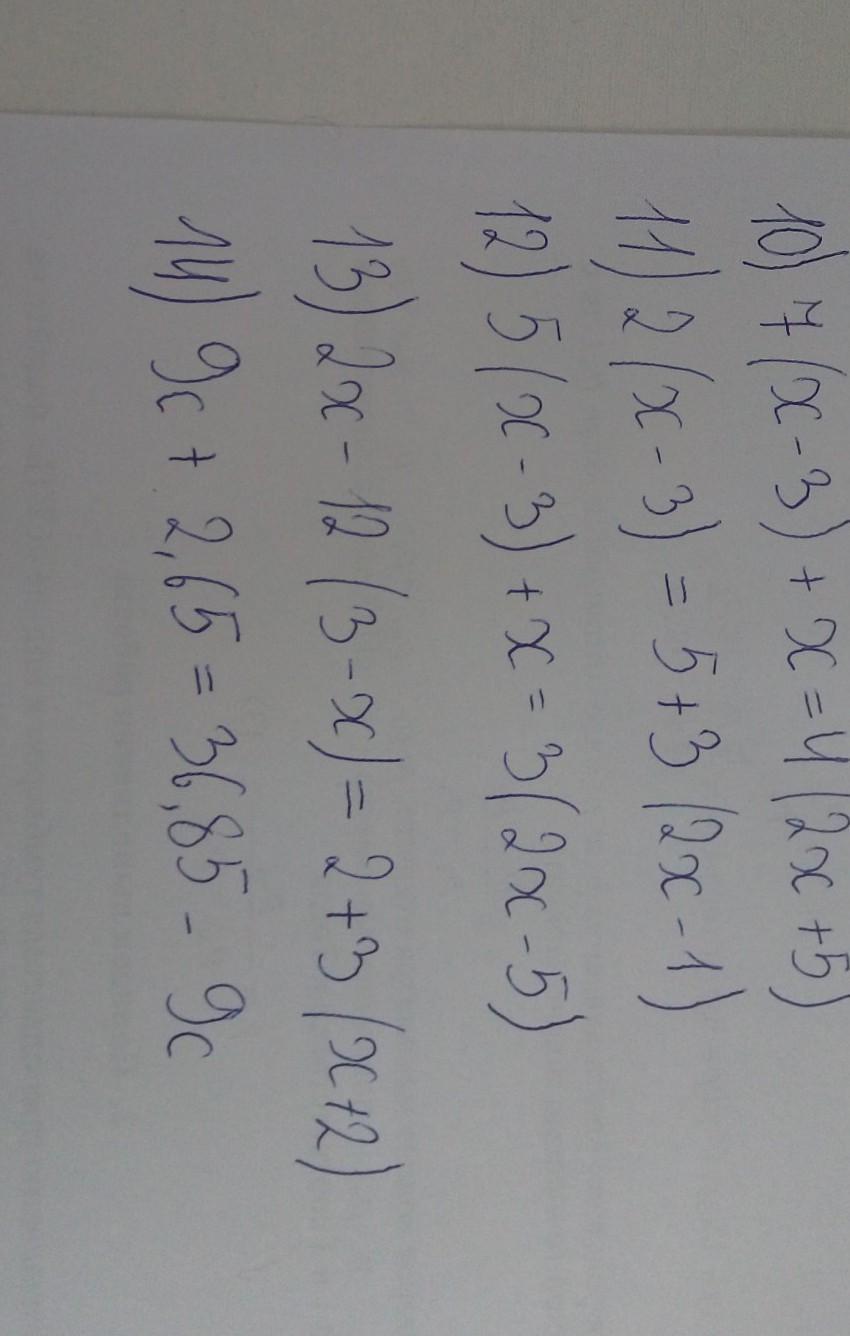 10) 7(x-3)+x=4(2x+5)
11) 2(x-3)=5+3(2x-1)
12) 5(x-3)+x=3(2x-5)
13) 2x-12(3-x)=2+3(x+2)
14) 9c+2,65=36,85-9c